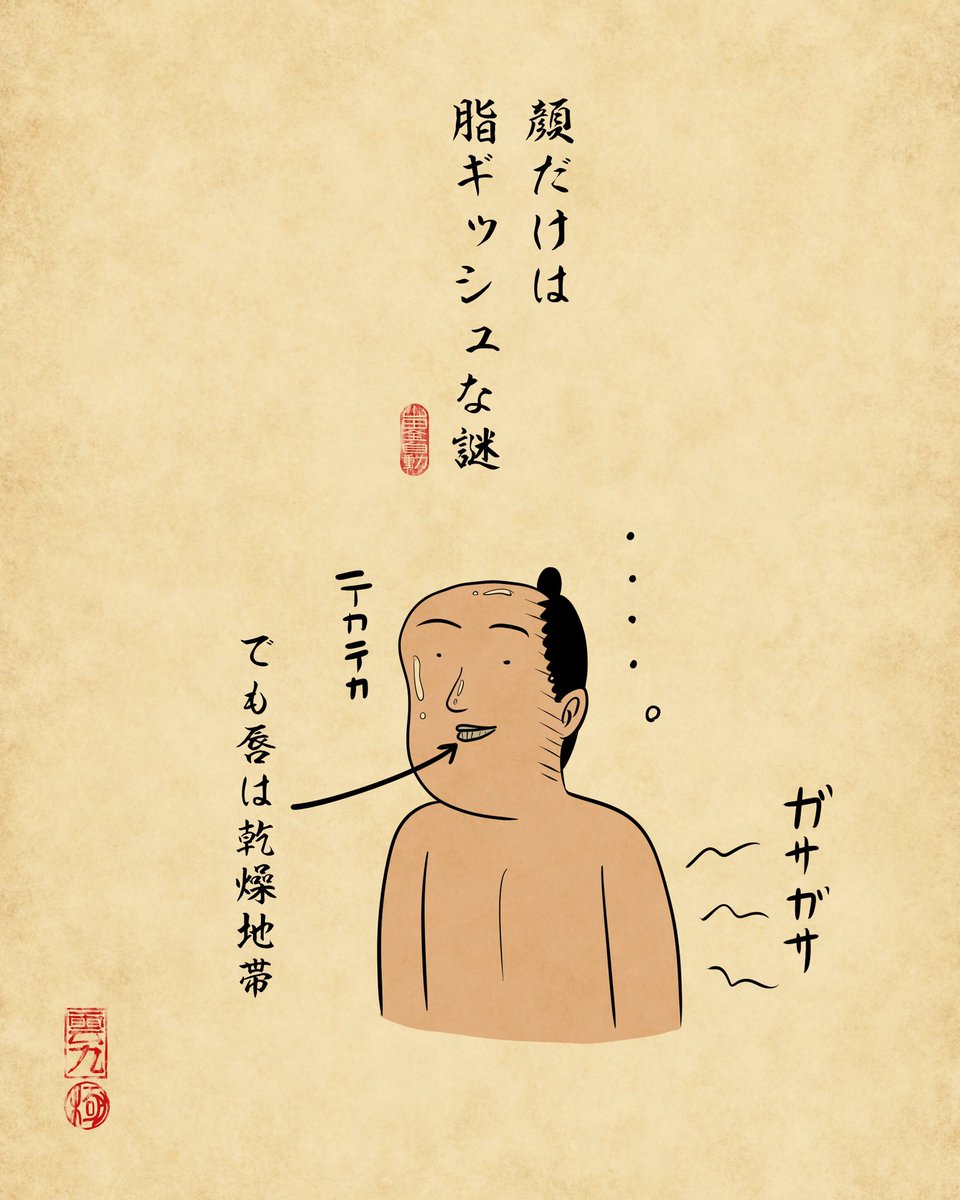 顔だけは
脂ギッシュな謎
テカテカ
でも唇は乾燥地帯
ガサガサ